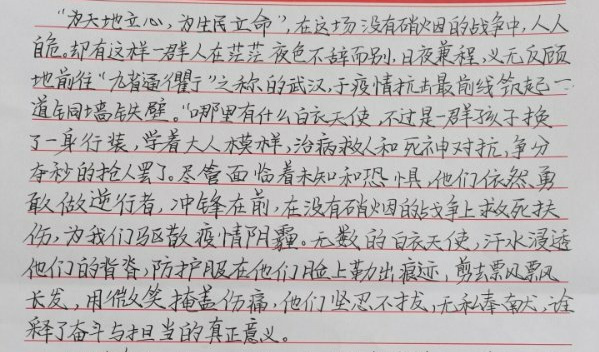 “为天地立心，为生民立命”，在这场没有硝烟的战争中，人人
自危。却有这样一群人在茫茫夜色不辞而别，日夜兼程，义无反顾
地前往“九省通衢”之称的武汉，于疫情抗击最前线筑起一
道铜墙铁壁。“哪里有什么白衣天使，不过是一群孩子换
了一身行装，学着大人模样，治病救人和死神对抗，争分
夺秒的抢人罢了。尽管面临着未知和恐惧，他们依然勇
敢做逆行者，冲锋在前，在没有硝烟的战争上救死扶
伤，为我们驱散疫情阴霾。无数的白衣天使，汗水浸透
他们的背脊，防护服在他们脸上勒出痕迹，剪去飘飘
长发，用微笑掩盖伤痛，他们坚忍不拔，无私奉献，诠
释了奋斗与担当的真正意义。